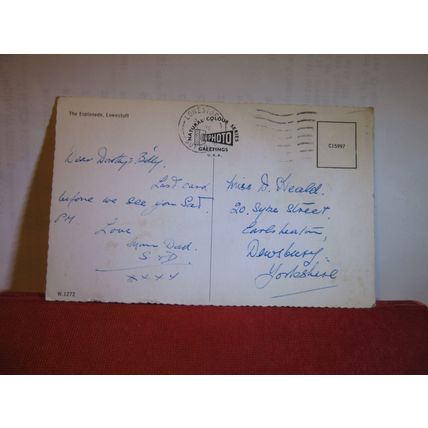 The Esplanade, Lowestoft
LOWESTOFT
NATURAL COLOUR SERIES
PHOTO
GREETINGS
C15997
Dear Dorothy & Billy,
Last card
before we see you Sat.
PM
Love
Mum Dad.
S & D
xxxx
Miss D. Heald.
20. Syke Street,
Earlsheaton,
Dewsbury,
Yorkshire
W.1272